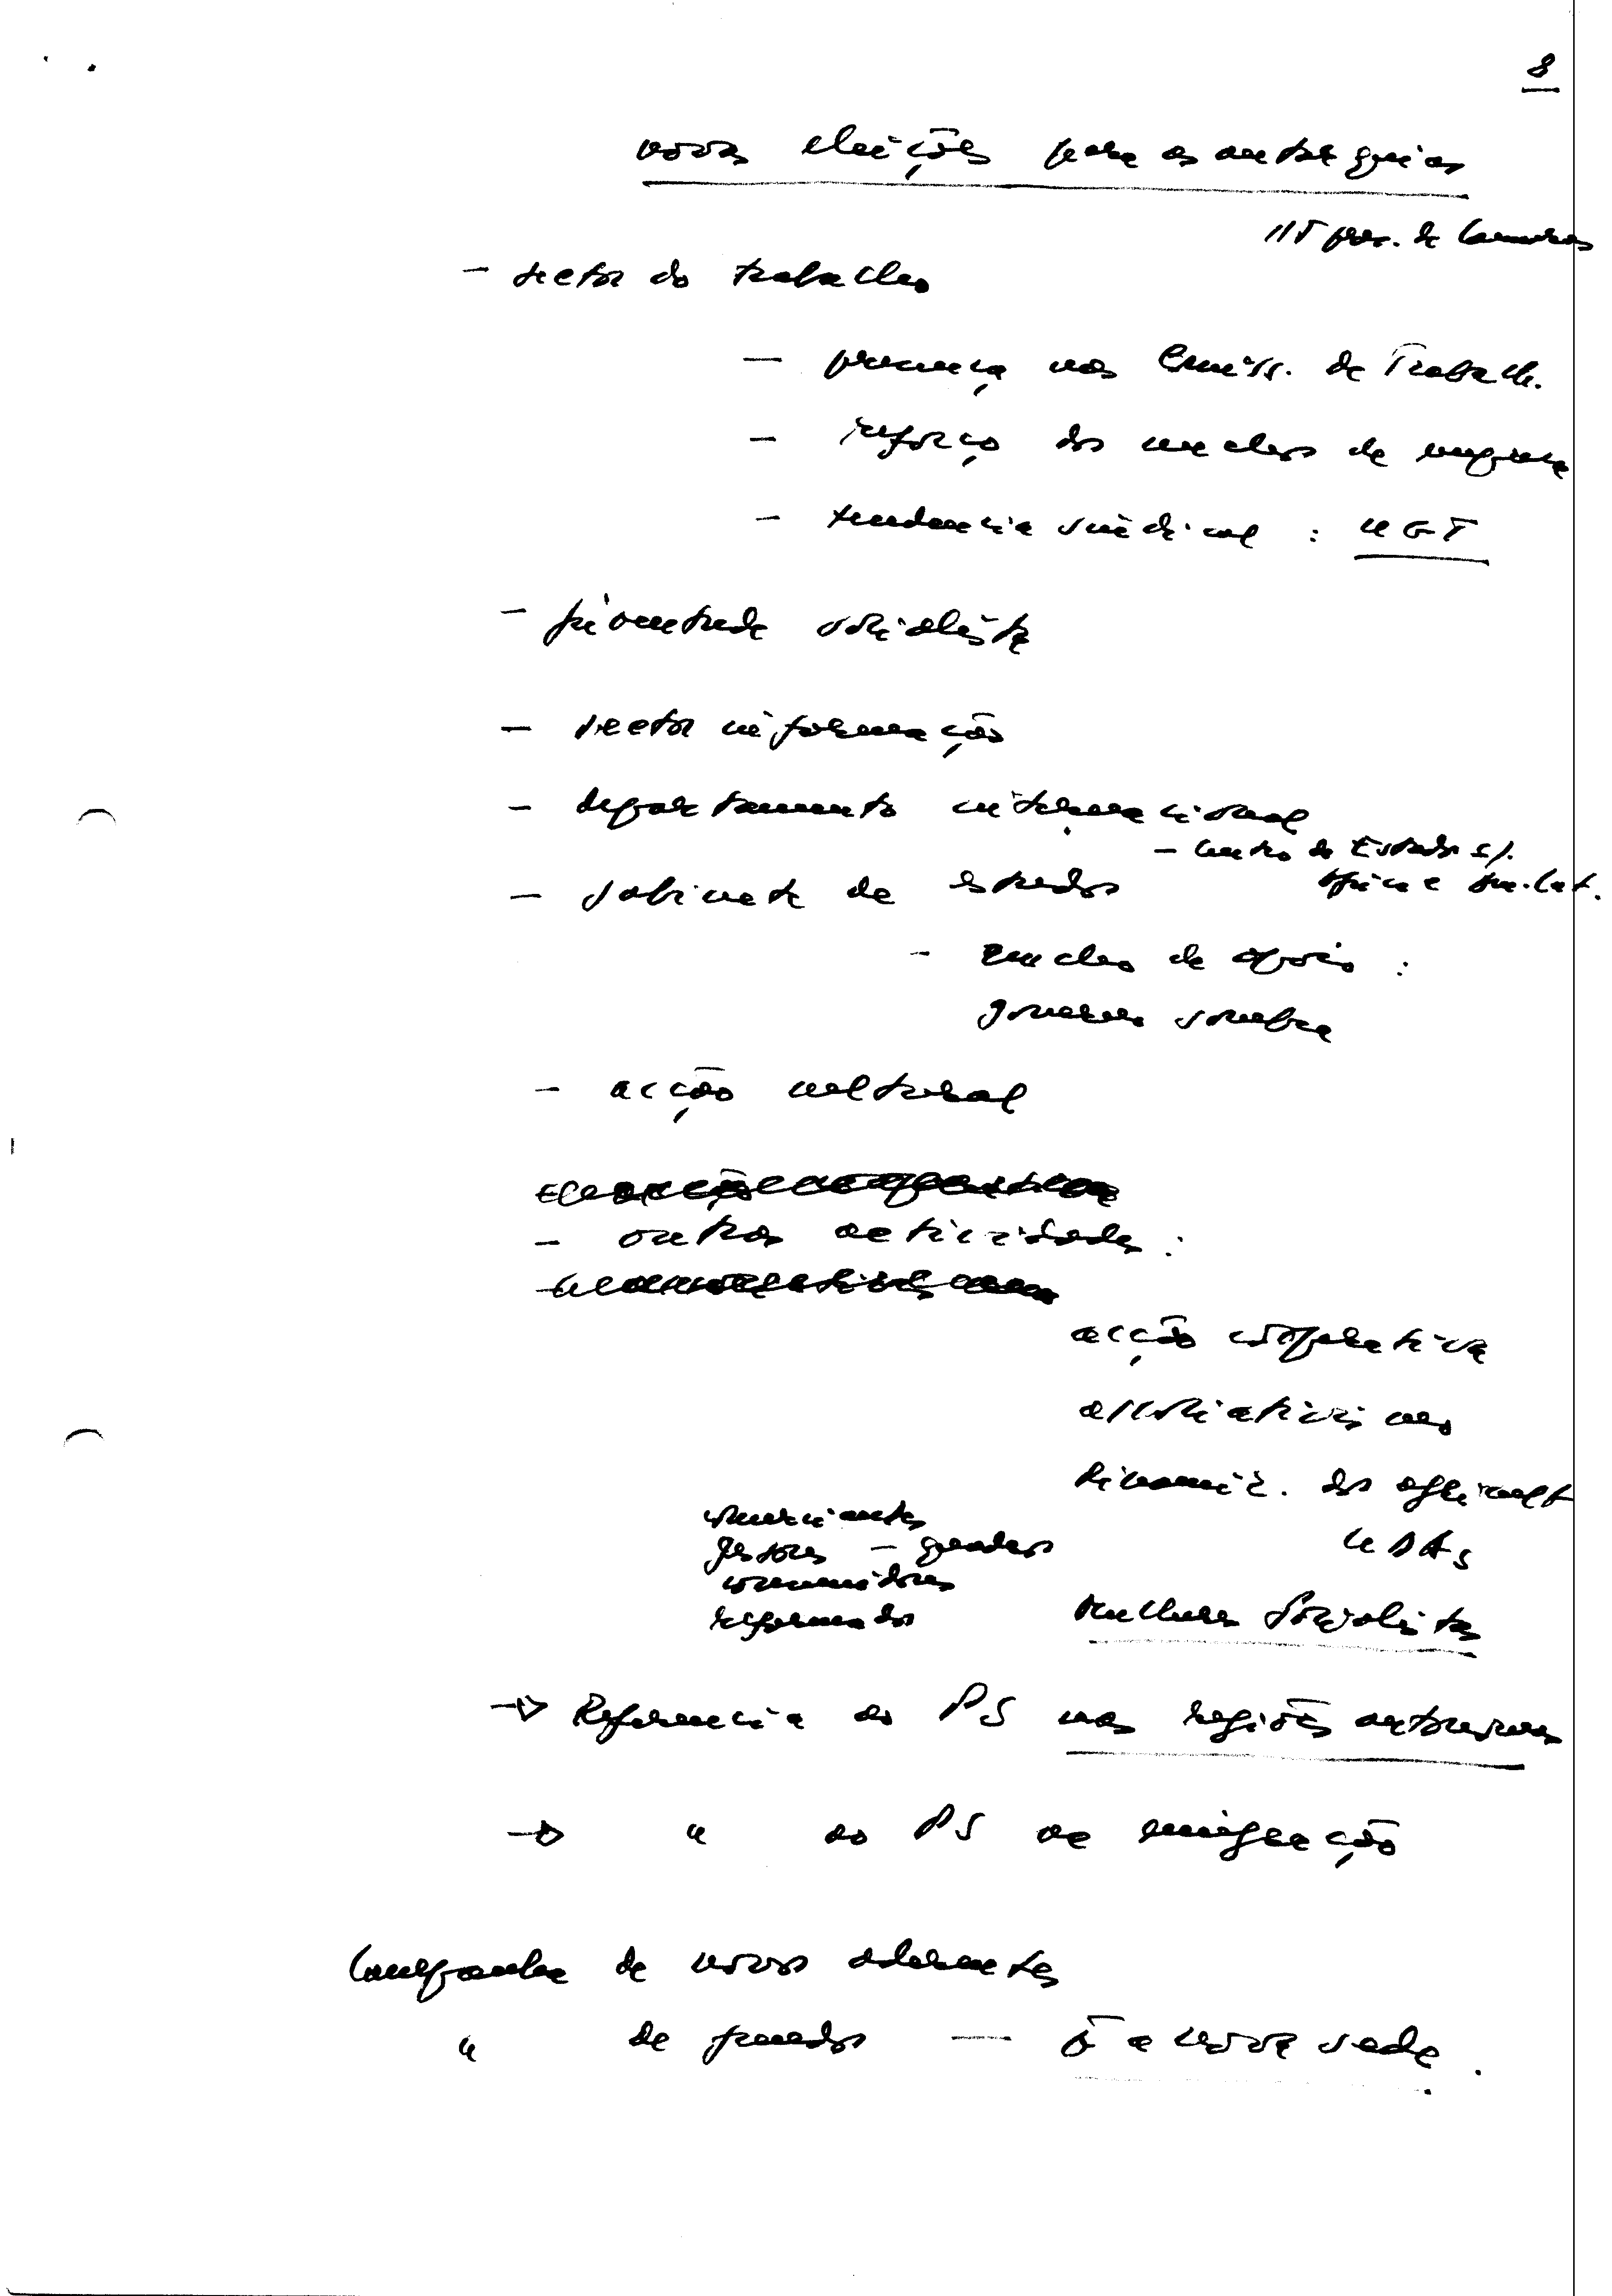 8
novas eleições para as autarquias
115 pres. de Camaras
- sector do trabalho
- presença nas Comiss. de Trabalh.
- reforço dos nucleos de empresa
- tendencia sindical : UGT
- juventude socialista
- sector informação
- departamento internacional
- Centro de Estudos s/.
Africa e Am. Lat.
- gabinete de estudos
- nucleo de apoio :
governo sombra
- acção cultural
- outras actividades :
acção cooperativa
associativismo
dinamiz. dos agricult
comerciantes
UDAs
gestores - quadros
consumidores
reformados
Mulheres Socialistas
→ Referencia ao PS nas regiões autonomas
→ " ao PS na emigração
Campanha de novos aderentes
" de fundos — p. a nova sede.